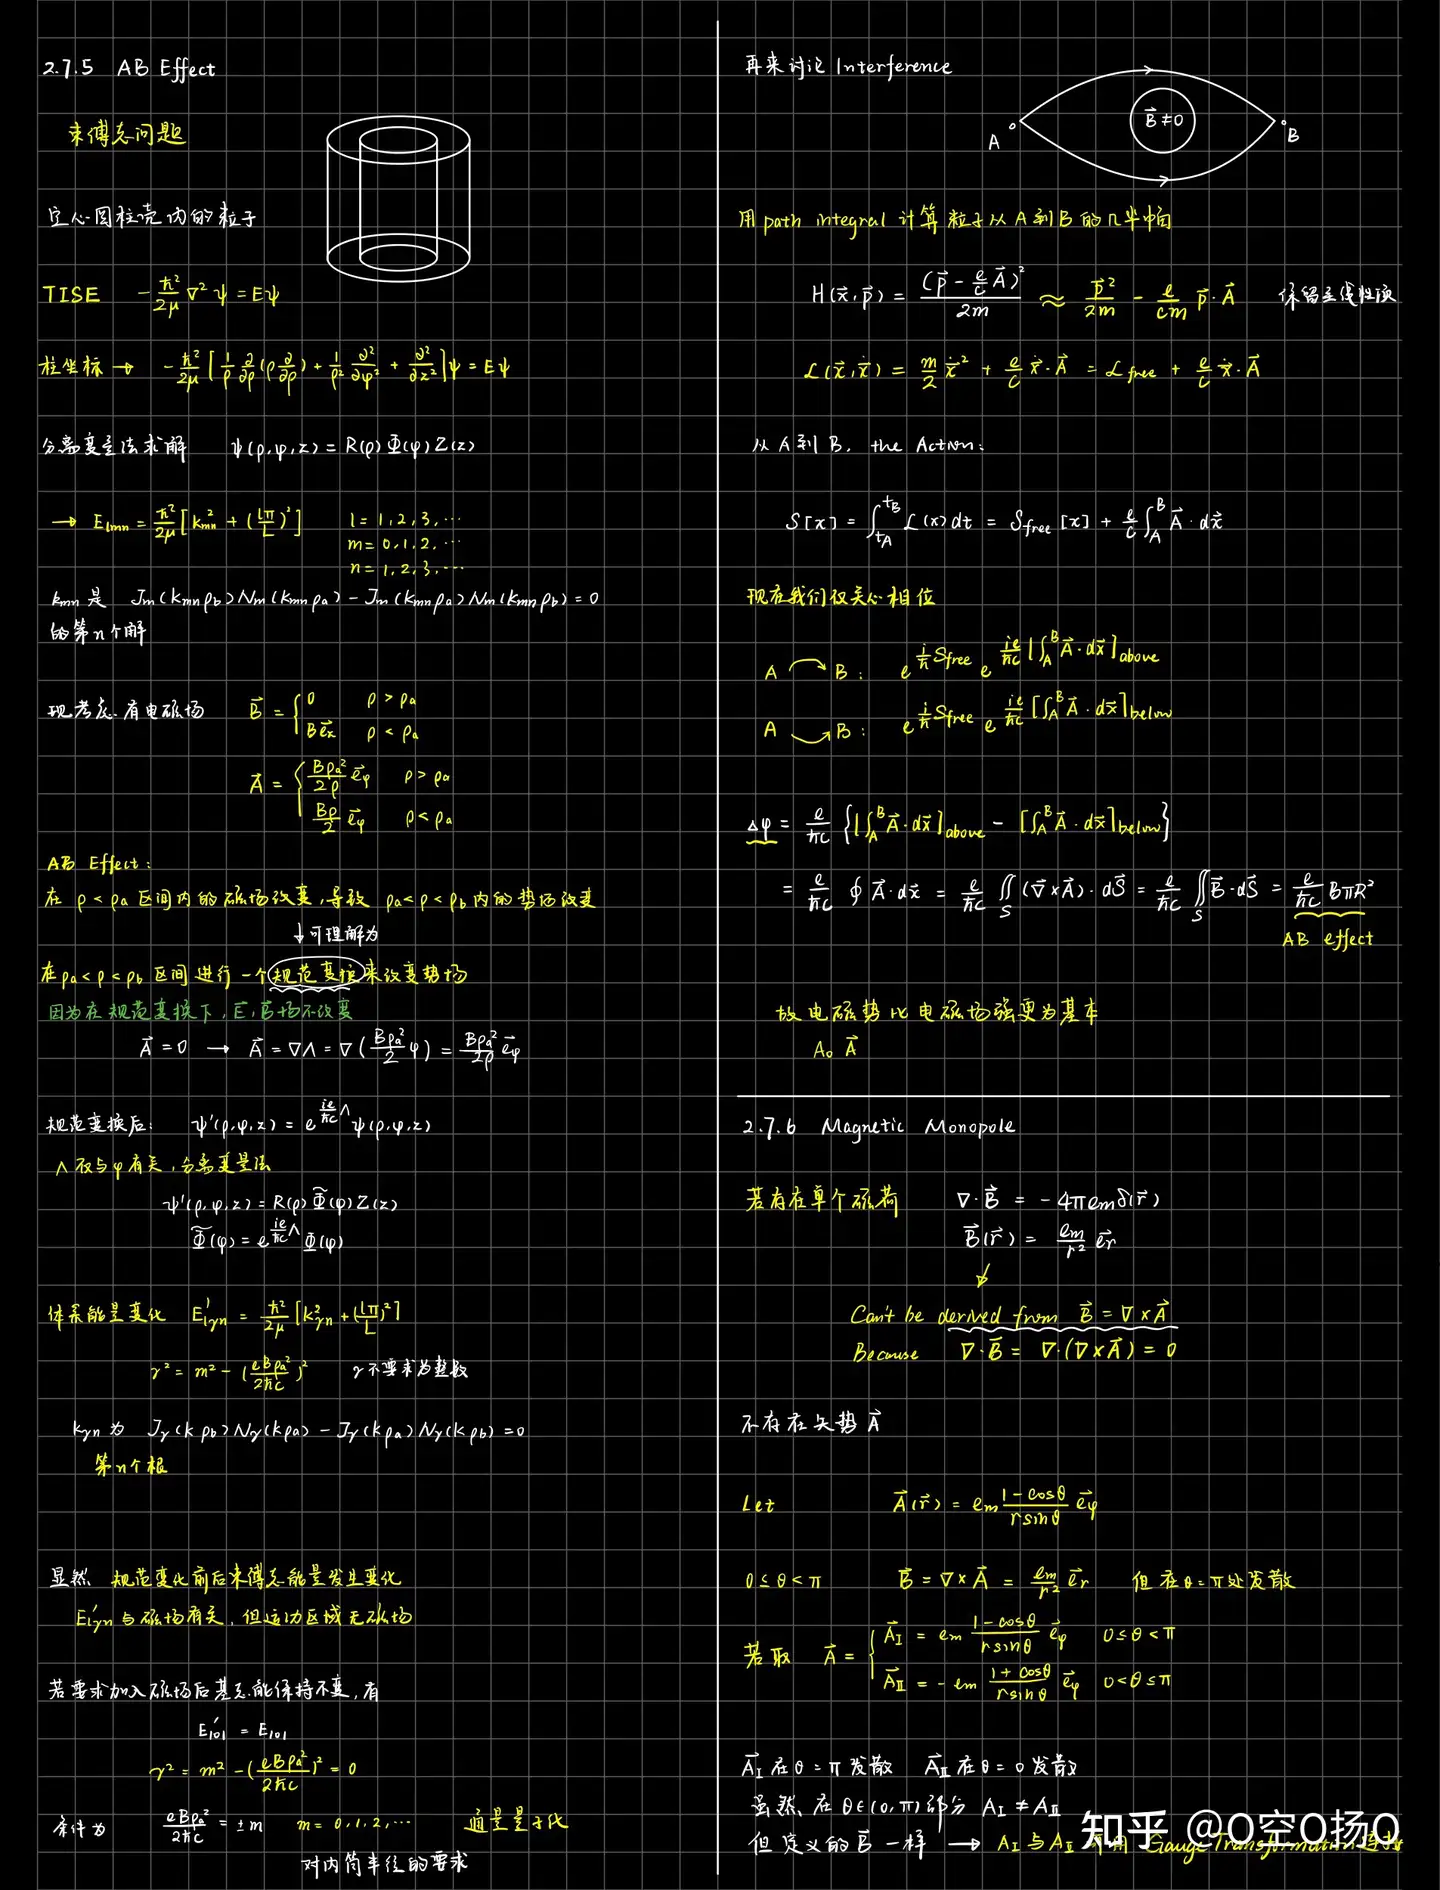 2.7.5 AB Effect
束缚态问题
空心圆柱壳内的粒子
TISE -\frac{ħ²}{2μ}∇²ψ = Eψ
柱坐标 → -\frac{ħ²}{2μ}[\frac{1}{ρ}\frac{∂}{∂ρ}(ρ\frac{∂}{∂ρ}) + \frac{1}{ρ²}\frac{∂²}{∂φ²} + \frac{∂²}{∂z²}]ψ = Eψ
分离变量法求解 ψ(ρ,φ,z) = R(ρ)Φ(φ)Z(z)
→ E_{lmn} = \frac{ħ²}{2μ}[k_{mn}² + (\frac{lπ}{L})²] l = 1,2,3,⋯
m = 0,1,2,⋯
n = 1,2,3,⋯
k_{mn} 是 J_m(k_{mn}ρ_b)N_m(k_{mn}ρ_a) - J_m(k_{mn}ρ_a)N_m(k_{mn}ρ_b) = 0
的第n个解
现考虑有电磁场 \vec{B} = { 0 ρ > ρ_a
B\vec{e_z} ρ < ρ_a
\vec{A} = { \frac{Bρ_a²}{2ρ}\vec{e_φ} ρ > ρ_a
\frac{Bρ}{2}\vec{e_φ} ρ < ρ_a
AB Effect:
在 ρ < ρ_a 区间内的磁场改变,导致 ρ_a < ρ < ρ_b 内的势场改变
↓可理解为
在 ρ_a < ρ < ρ_b 区间进行一个规范变换来改变势场
因为在规范变换下, \vec{E}, \vec{B} 场不改变
\vec{A} = 0 → \vec{A} = ∇Λ = ∇(\frac{Bρ_a²}{2}φ) = \frac{Bρ_a²}{2ρ}\vec{e_φ}
规范变换后: ψ'(ρ,φ,z) = e^{\frac{ie}{ħc}Λ}ψ(ρ,φ,z)
Λ 仅与 φ 有关, 分离变量法
ψ'(ρ,φ,z) = R(ρ)\tilde{Φ}(φ)Z(z)
\tilde{Φ}(φ) = e^{\frac{ie}{ħc}Λ}Φ(φ)
体系能量变化 E'_{lγn} = \frac{ħ²}{2μ}[k_{γn}² + (\frac{lπ}{L})²]
γ² = m² - (\frac{eBρ_a²}{2ħc})² γ不要求为整数
k_{γn} 为 J_γ(kρ_b)N_γ(kρ_a) - J_γ(kρ_a)N_γ(kρ_b) = 0
第n个根
显然 规范变化前后束缚态能量发生变化
E'_{lγn} 与磁场有关, 但运动区域无磁场
若要求加入磁场后基态能保持不变, 有
E'_{101} = E_{101}
γ² = m² - (\frac{eBρ_a²}{2ħc})² = 0
条件为 \frac{eBρ_a²}{2ħc} = ±m m = 0,1,2,⋯ 通量量子化
对内筒半径的要求
再来讨论 Interference
\vec{B}≠0
A B
用 path integral 计算粒子从A到B的几率幅
H(\vec{x},\vec{p}) = \frac{(\vec{p} - \frac{e}{c}\vec{A})²}{2m} ≈ \frac{\vec{p}²}{2m} - \frac{e}{cm}\vec{p}·\vec{A} 保留至线性项
L(\vec{x},\dot{x}) = \frac{m}{2}\dot{x}² + \frac{e}{c}\dot{x}·\vec{A} = L_{free} + \frac{e}{c}\dot{x}·\vec{A}
从A到B, the Action:
S[x] = ∫_{t_A}^{t_B} L(x)dt = S_{free}[x] + \frac{e}{c}∫_A^B \vec{A}·d\vec{x}
现在我们仅关心相位
A ⌒ B: e^{\frac{i}{ħ}S_{free}} e^{\frac{ie}{ħc}[∫_A^B \vec{A}·d\vec{x}]_{above}}
A ⌣ B: e^{\frac{i}{ħ}S_{free}} e^{\frac{ie}{ħc}[∫_A^B \vec{A}·d\vec{x}]_{below}}
Δφ = \frac{e}{ħc}{[∫_A^B \vec{A}·d\vec{x}]_{above} - [∫_A^B \vec{A}·d\vec{x}]_{below}}
= \frac{e}{ħc}∮\vec{A}·d\vec{x} = \frac{e}{ħc}∬_S(∇×\vec{A})·d\vec{S} = \frac{e}{ħc}∬_S\vec{B}·d\vec{S} = \frac{e}{ħc}BπR²
AB effect
故电磁势比电磁场强更为基本
A₀ \vec{A}
2.7.6 Magnetic Monopole
若存在单个磁荷 ∇·\vec{B} = -4πe_mδ(\vec{r})
\vec{B}(\vec{r}) = \frac{e_m}{r²}\vec{e_r}
Can't be derived from \vec{B} = ∇×\vec{A}
Because ∇·\vec{B} = ∇·(∇×\vec{A}) = 0
不存在矢势 \vec{A}
Let \vec{A}(\vec{r}) = e_m\frac{1-cosθ}{r sinθ}\vec{e_φ}
0≤θ<π \vec{B} = ∇×\vec{A} = \frac{e_m}{r²}\vec{e_r} 但在θ=π处发散
若取 \vec{A} = { \vec{A_I} = e_m\frac{1-cosθ}{r sinθ}\vec{e_φ} 0≤θ<π
\vec{A_{II}} = -e_m\frac{1+cosθ}{r sinθ}\vec{e_φ} 0<θ≤π
\vec{A_I} 在θ=π发散 \vec{A_{II}} 在θ=0发散
虽然 在θ∈(0,π)部分 A_I ≠ A_{II}
但定义的 \vec{B} 一样 → A_I 与 A_{II} 用 Gauge Transformation
知乎 @O空O扬O